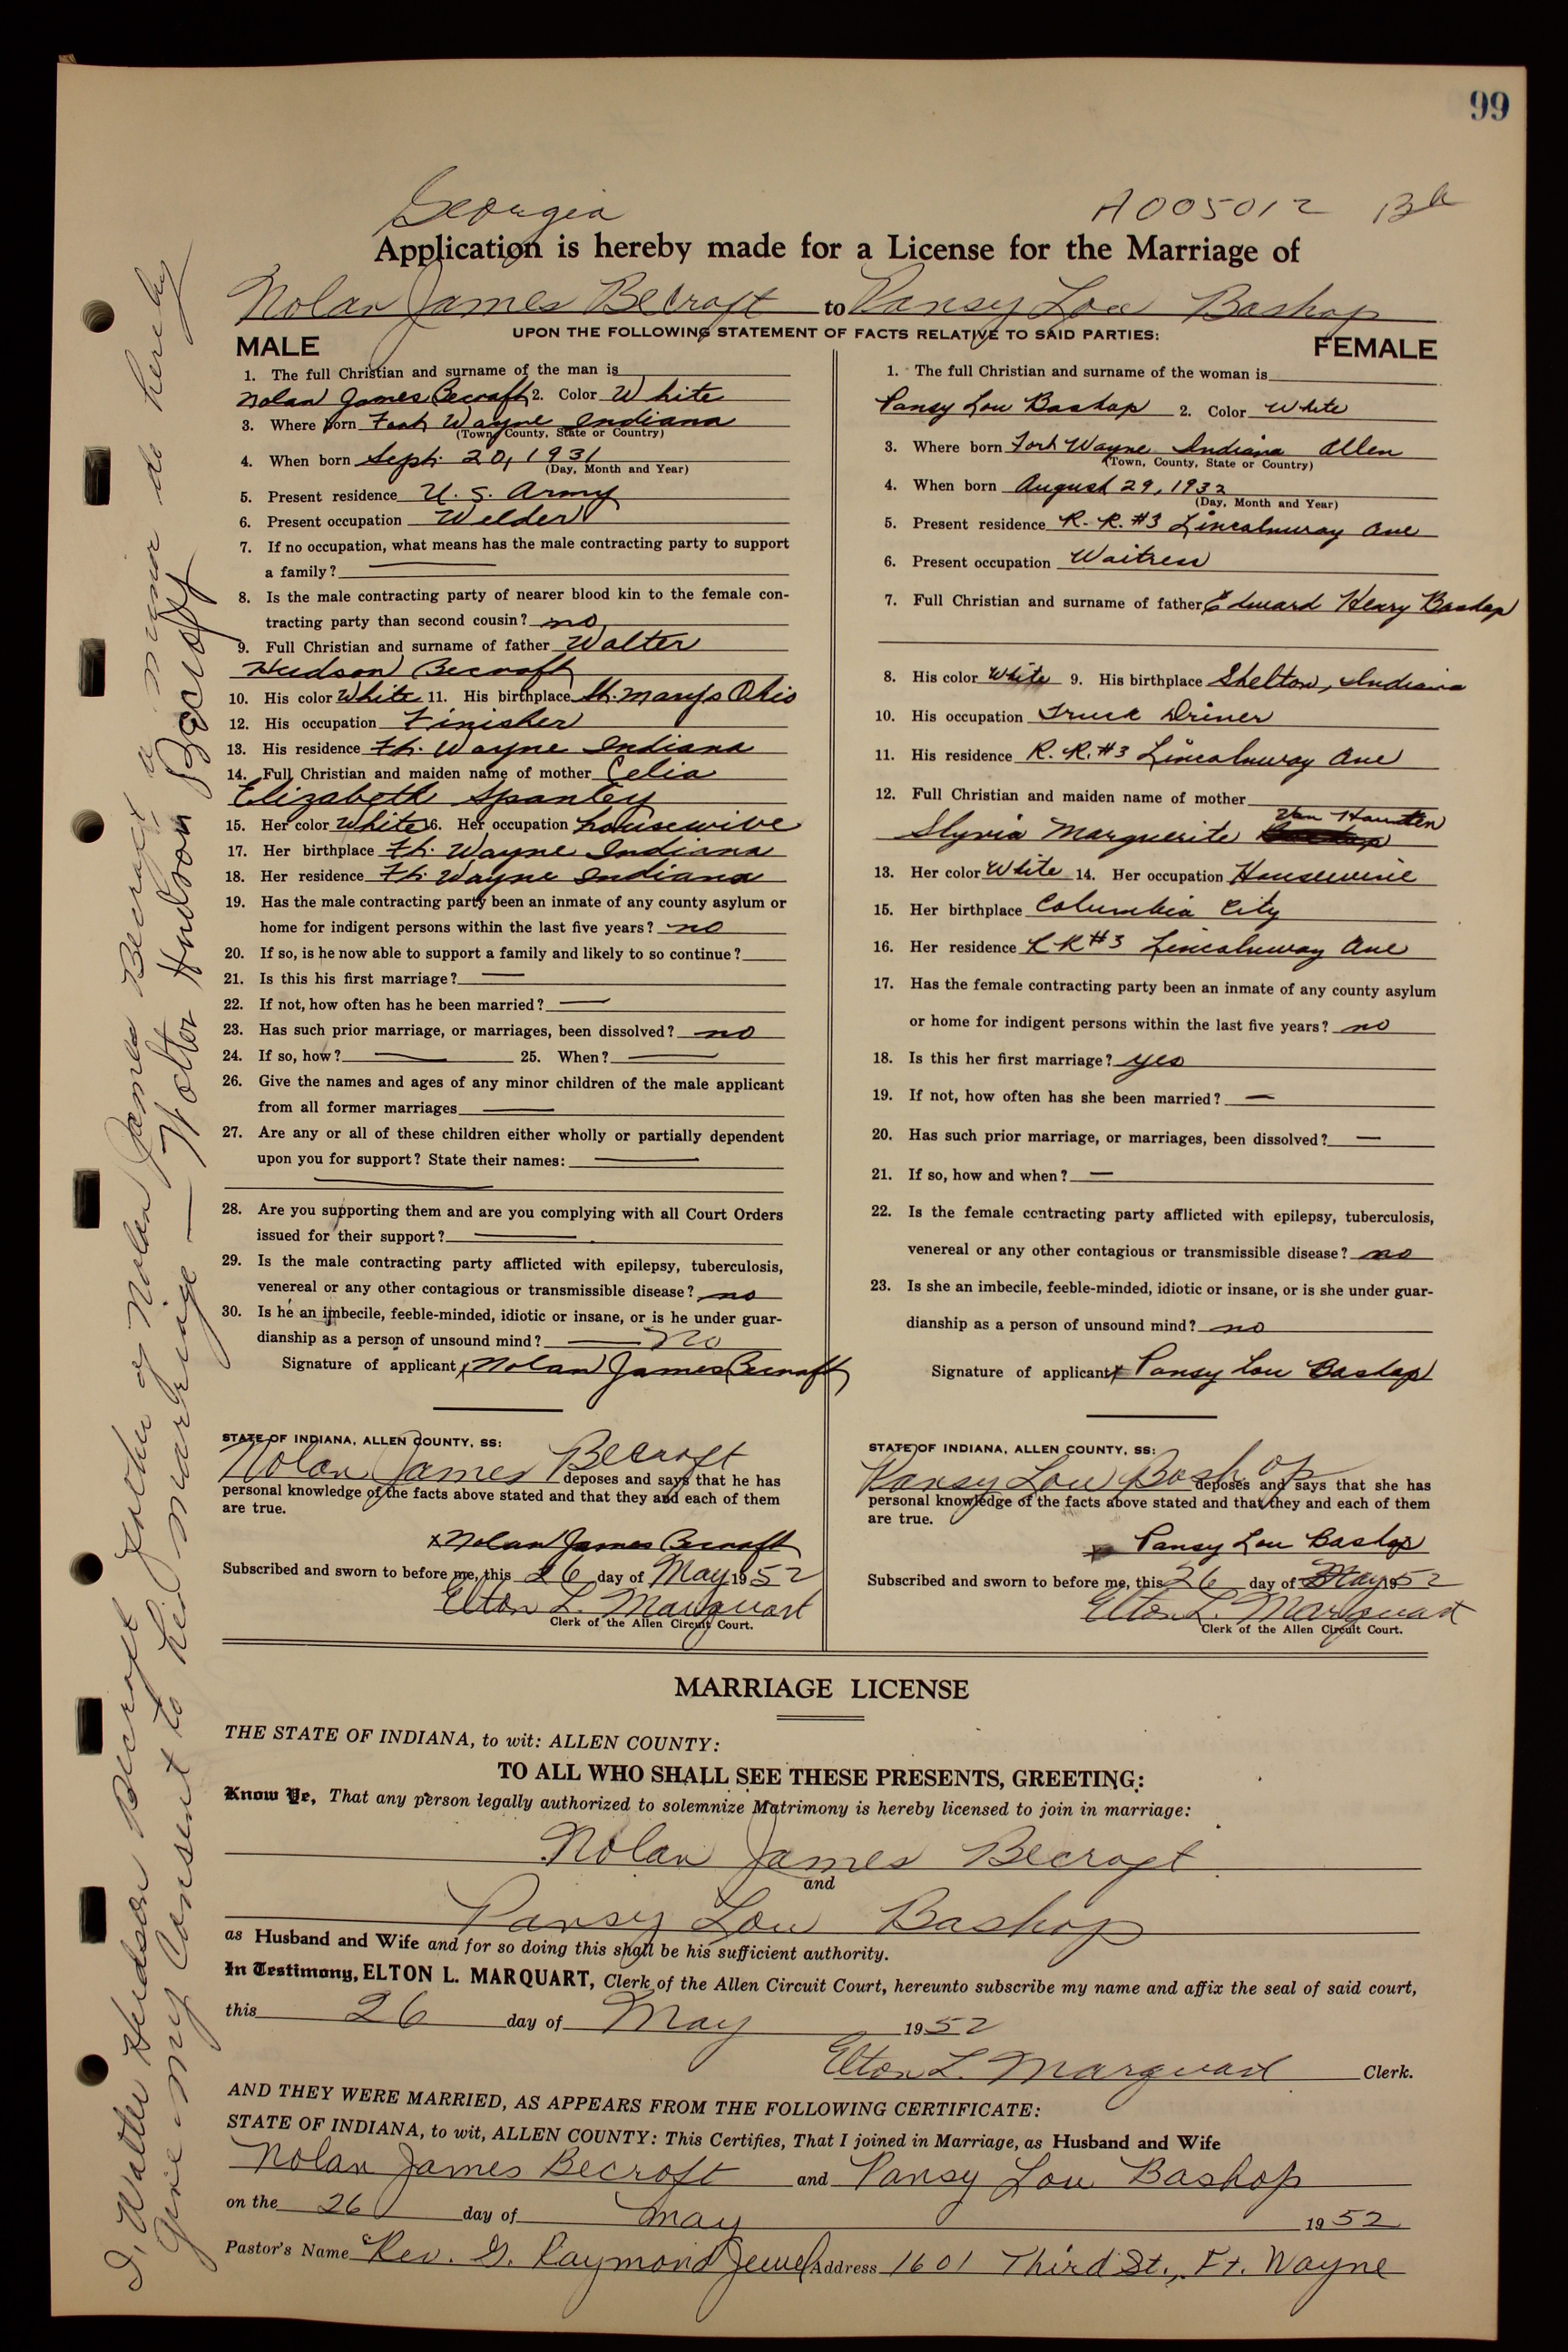 99
Georgia A005012
Application is hereby made for a License for the Marriage of
Nolan James Becroft to Pansy Lou Bashop
UPON THE FOLLOWING STATEMENT OF FACTS RELATIVE TO SAID PARTIES:
MALE
1. The full Christian and surname of the man is
Nolan James Becroft 2. Color White
3. Where born Fort Wayne Indiana
(Town, County, State or Country)
4. When born Sept. 20, 1931
(Day, Month and Year)
5. Present residence U. S. Army
6. Present occupation Welder
7. If no occupation, what means has the male contracting party to support
a family?
8. Is the male contracting party of nearer blood kin to the female con-
tracting party than second cousin? no
9. Full Christian and surname of father Walter
Hudson Becroft
10. His color White 11. His birthplace St. Marys Ohio
12. His occupation Finisher
13. His residence Ft. Wayne Indiana
14. Full Christian and maiden name of mother Celia
Elizabeth Spanley
15. Her color White 16. Her occupation housewive
17. Her birthplace Ft. Wayne Indiana
18. Her residence Ft. Wayne Indiana
19. Has the male contracting party been an inmate of any county asylum or
home for indigent persons within the last five years? no
20. If so, is he now able to support a family and likely to so continue?
21. Is this his first marriage? —
22. If not, how often has he been married? —
23. Has such prior marriage, or marriages, been dissolved? no
24. If so, how? — 25. When? —
26. Give the names and ages of any minor children of the male applicant
from all former marriages —
27. Are any or all of these children either wholly or partially dependent
upon you for support? State their names: —
28. Are you supporting them and are you complying with all Court Orders
issued for their support? —
29. Is the male contracting party afflicted with epilepsy, tuberculosis,
venereal or any other contagious or transmissible disease? no
30. Is he an imbecile, feeble-minded, idiotic or insane, or is he under guar-
dianship as a person of unsound mind? — no
Signature of applicant x Nolan James Becroft
STATE OF INDIANA, ALLEN COUNTY, SS:
Nolan James Becroft deposes and says that he has
personal knowledge of the facts above stated and that they and each of them
are true.
x Nolan James Becroft
Subscribed and sworn to before me, this 26 day of May 1952
Elton L. Marquart
Clerk of the Allen Circuit Court.
FEMALE
1. The full Christian and surname of the woman is
Pansy Lou Bashop 2. Color White
3. Where born Fort Wayne Indiana Allen
(Town, County, State or Country)
4. When born August 29, 1932
(Day, Month and Year)
5. Present residence R. R. #3 Lincolnway Ave
6. Present occupation Waitress
7. Full Christian and surname of father Edward Henry Bashop
8. His color White 9. His birthplace Shelton, Indiana
10. His occupation Truck Driver
11. His residence R. R. #3 Lincolnway Ave
12. Full Christian and maiden name of mother
Slyvia Marguerite Van Houten
13. Her color White 14. Her occupation Housewive
15. Her birthplace Columbia City
16. Her residence R R #3 Lincolnway Ave
17. Has the female contracting party been an inmate of any county asylum
or home for indigent persons within the last five years? no
18. Is this her first marriage? yes
19. If not, how often has she been married? —
20. Has such prior marriage, or marriages, been dissolved? —
21. If so, how and when? —
22. Is the female contracting party afflicted with epilepsy, tuberculosis,
venereal or any other contagious or transmissible disease? no
23. Is she an imbecile, feeble-minded, idiotic or insane, or is she under guar-
dianship as a person of unsound mind? no
Signature of applicant x Pansy Lou Bashop
STATE OF INDIANA, ALLEN COUNTY, SS:
Pansy Lou Bashop deposes and says that she has
personal knowledge of the facts above stated and that they and each of them
are true.
x Pansy Lou Bashop
Subscribed and sworn to before me, this 26 day of May 1952
Elton L. Marquart
Clerk of the Allen Circuit Court.
MARRIAGE LICENSE
THE STATE OF INDIANA, to wit: ALLEN COUNTY:
TO ALL WHO SHALL SEE THESE PRESENTS, GREETING:
Know Ye, That any person legally authorized to solemnize Matrimony is hereby licensed to join in marriage:
Nolan James Becroft
and
Pansy Lou Bashop
as Husband and Wife and for so doing this shall be his sufficient authority.
In Testimony, ELTON L. MARQUART, Clerk of the Allen Circuit Court, hereunto subscribe my name and affix the seal of said court,
this 26 day of May 1952
Elton L. Marquart Clerk.
AND THEY WERE MARRIED, AS APPEARS FROM THE FOLLOWING CERTIFICATE:
STATE OF INDIANA, to wit, ALLEN COUNTY: This Certifies, That I joined in Marriage, as Husband and Wife
Nolan James Becroft and Pansy Lou Bashop
on the 26 day of May 1952
Pastor's Name Rev. G. Raymond Jewel Address 1601 Third St., Ft. Wayne
I, Walter Hudson Becroft father of Nolan James Becroft a minor do hereby
give my consent to his marriage — Walter Hudson Becroft